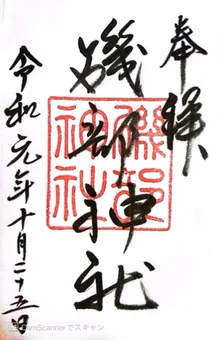 奉拝
磯部神社
磯部神社
令和元年十月二十五日
CamScannerでスキャン